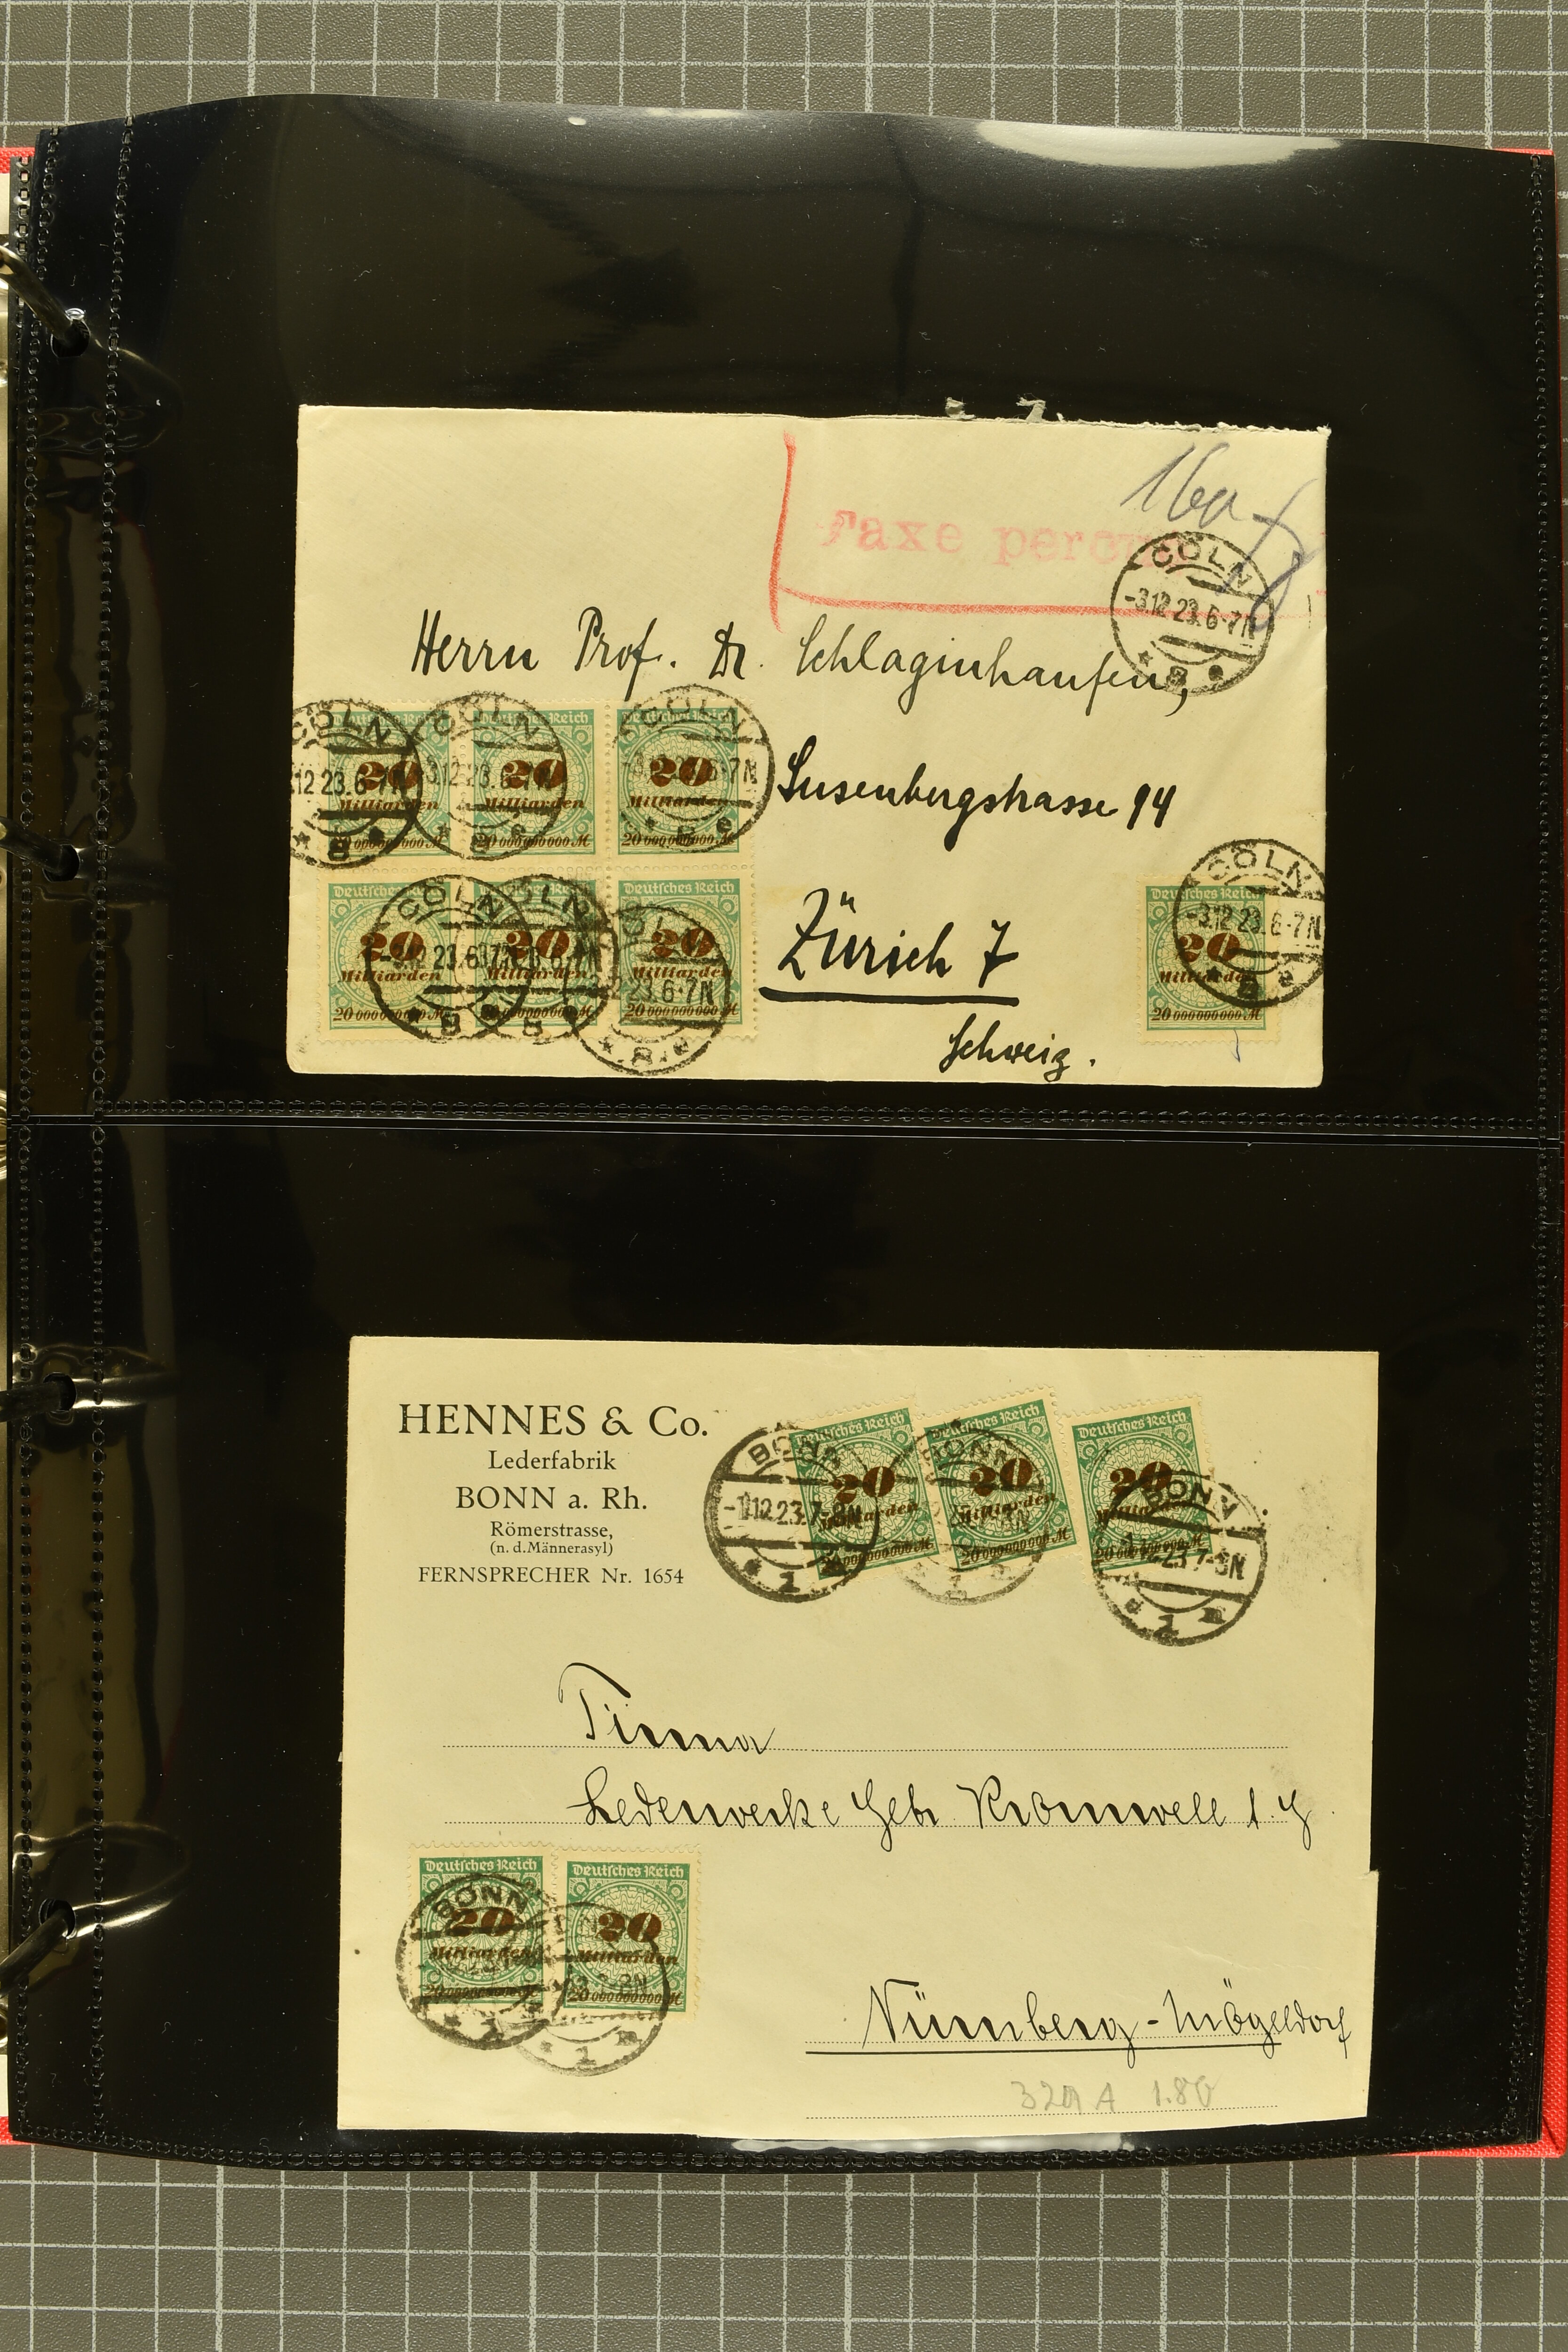 16a
Taxe perçue
CÖLN
-3.12.23.6-7N
* 8 e
Herrn Prof. Dr. Schlaginhaufen,
Deutsches Reich
20
Milliarden
20 000 000 000 M
Deutsches Reich
20
Milliarden
20 000 000 000 M
Deutsches Reich
20
Milliarden
20 000 000 000 M
Susenbergstrasse 94
Deutsches Reich
20
Milliarden
20 000 000 000 M
Deutsches Reich
20
Milliarden
20 000 000 000 M
Deutsches Reich
20
Milliarden
20 000 000 000 M
Zürich 7
Schweiz.
CÖLN
-3.12.23.6-7N
* 8 e
Deutsches Reich
20
Milliarden
20 000 000 000 M
HENNES & Co.
Lederfabrik
BONN a. Rh.
Römerstrasse,
(n. d. Männerasyl)
FERNSPRECHER Nr. 1654
BONN
-1.12.23.7-8N
* 1 n
Deutsches Reich
20
Milliarden
20 000 000 000 M
Deutsches Reich
20
Milliarden
20 000 000 000 M
Deutsches Reich
20
Milliarden
20 000 000 000 M
BONN
7-8N
* 1 n
Firma
Lederwerke Gebr. Kromwell
Deutsches Reich
20
Milliarden
20 000 000 000 M
Deutsches Reich
20
Milliarden
20 000 000 000 M
BONN
Nürnberg-Mögeldorf
329 A 1.80